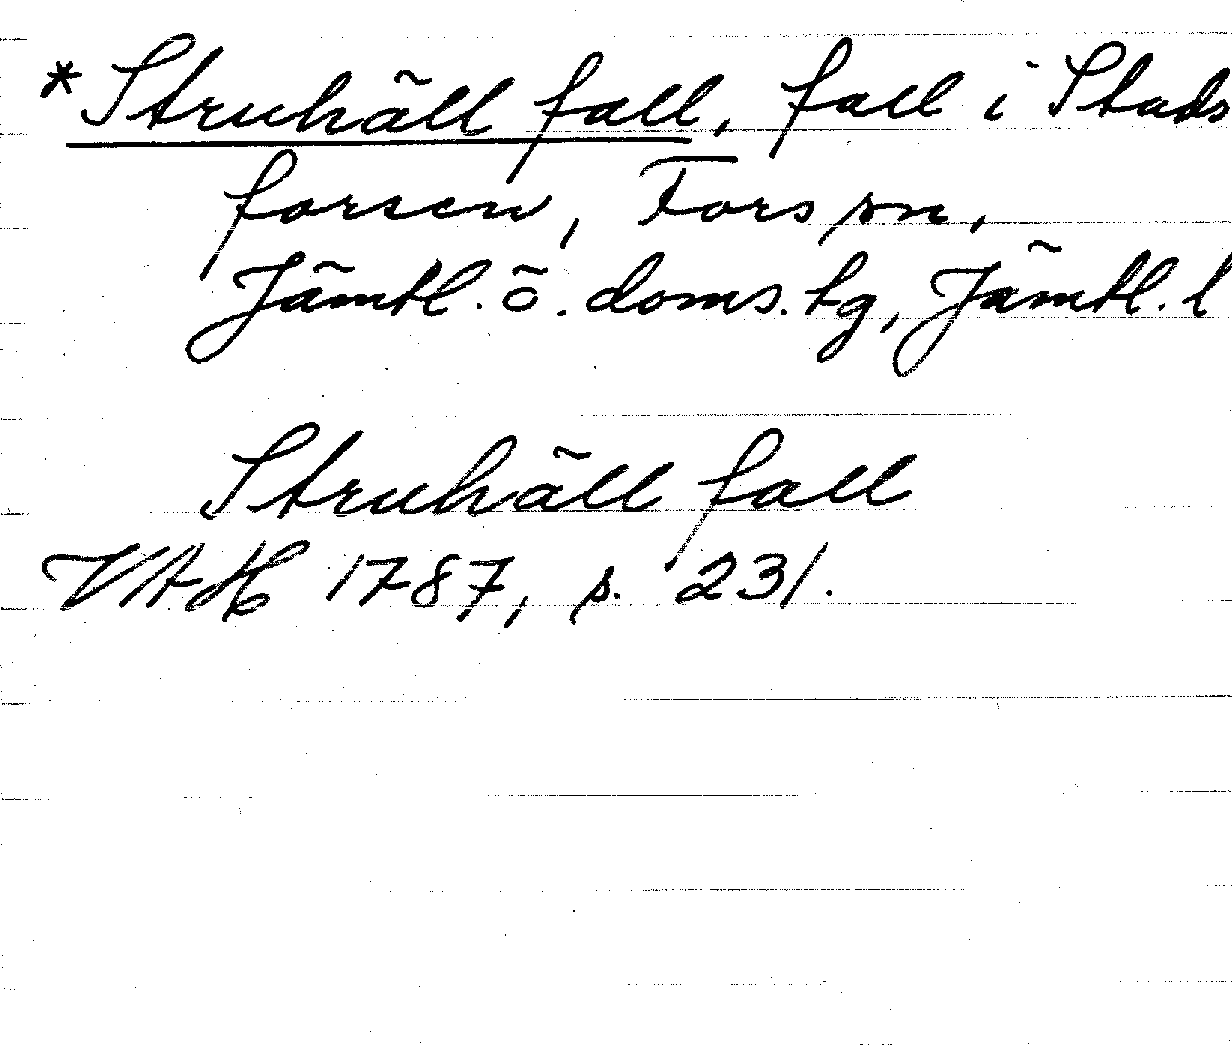 *Struhäll fall, fall i Stads
forsen, Fors sn,
Jämtl. ö. doms. tg, Jämtl. l
Struhäll fall
VAH 1787, s. 231.